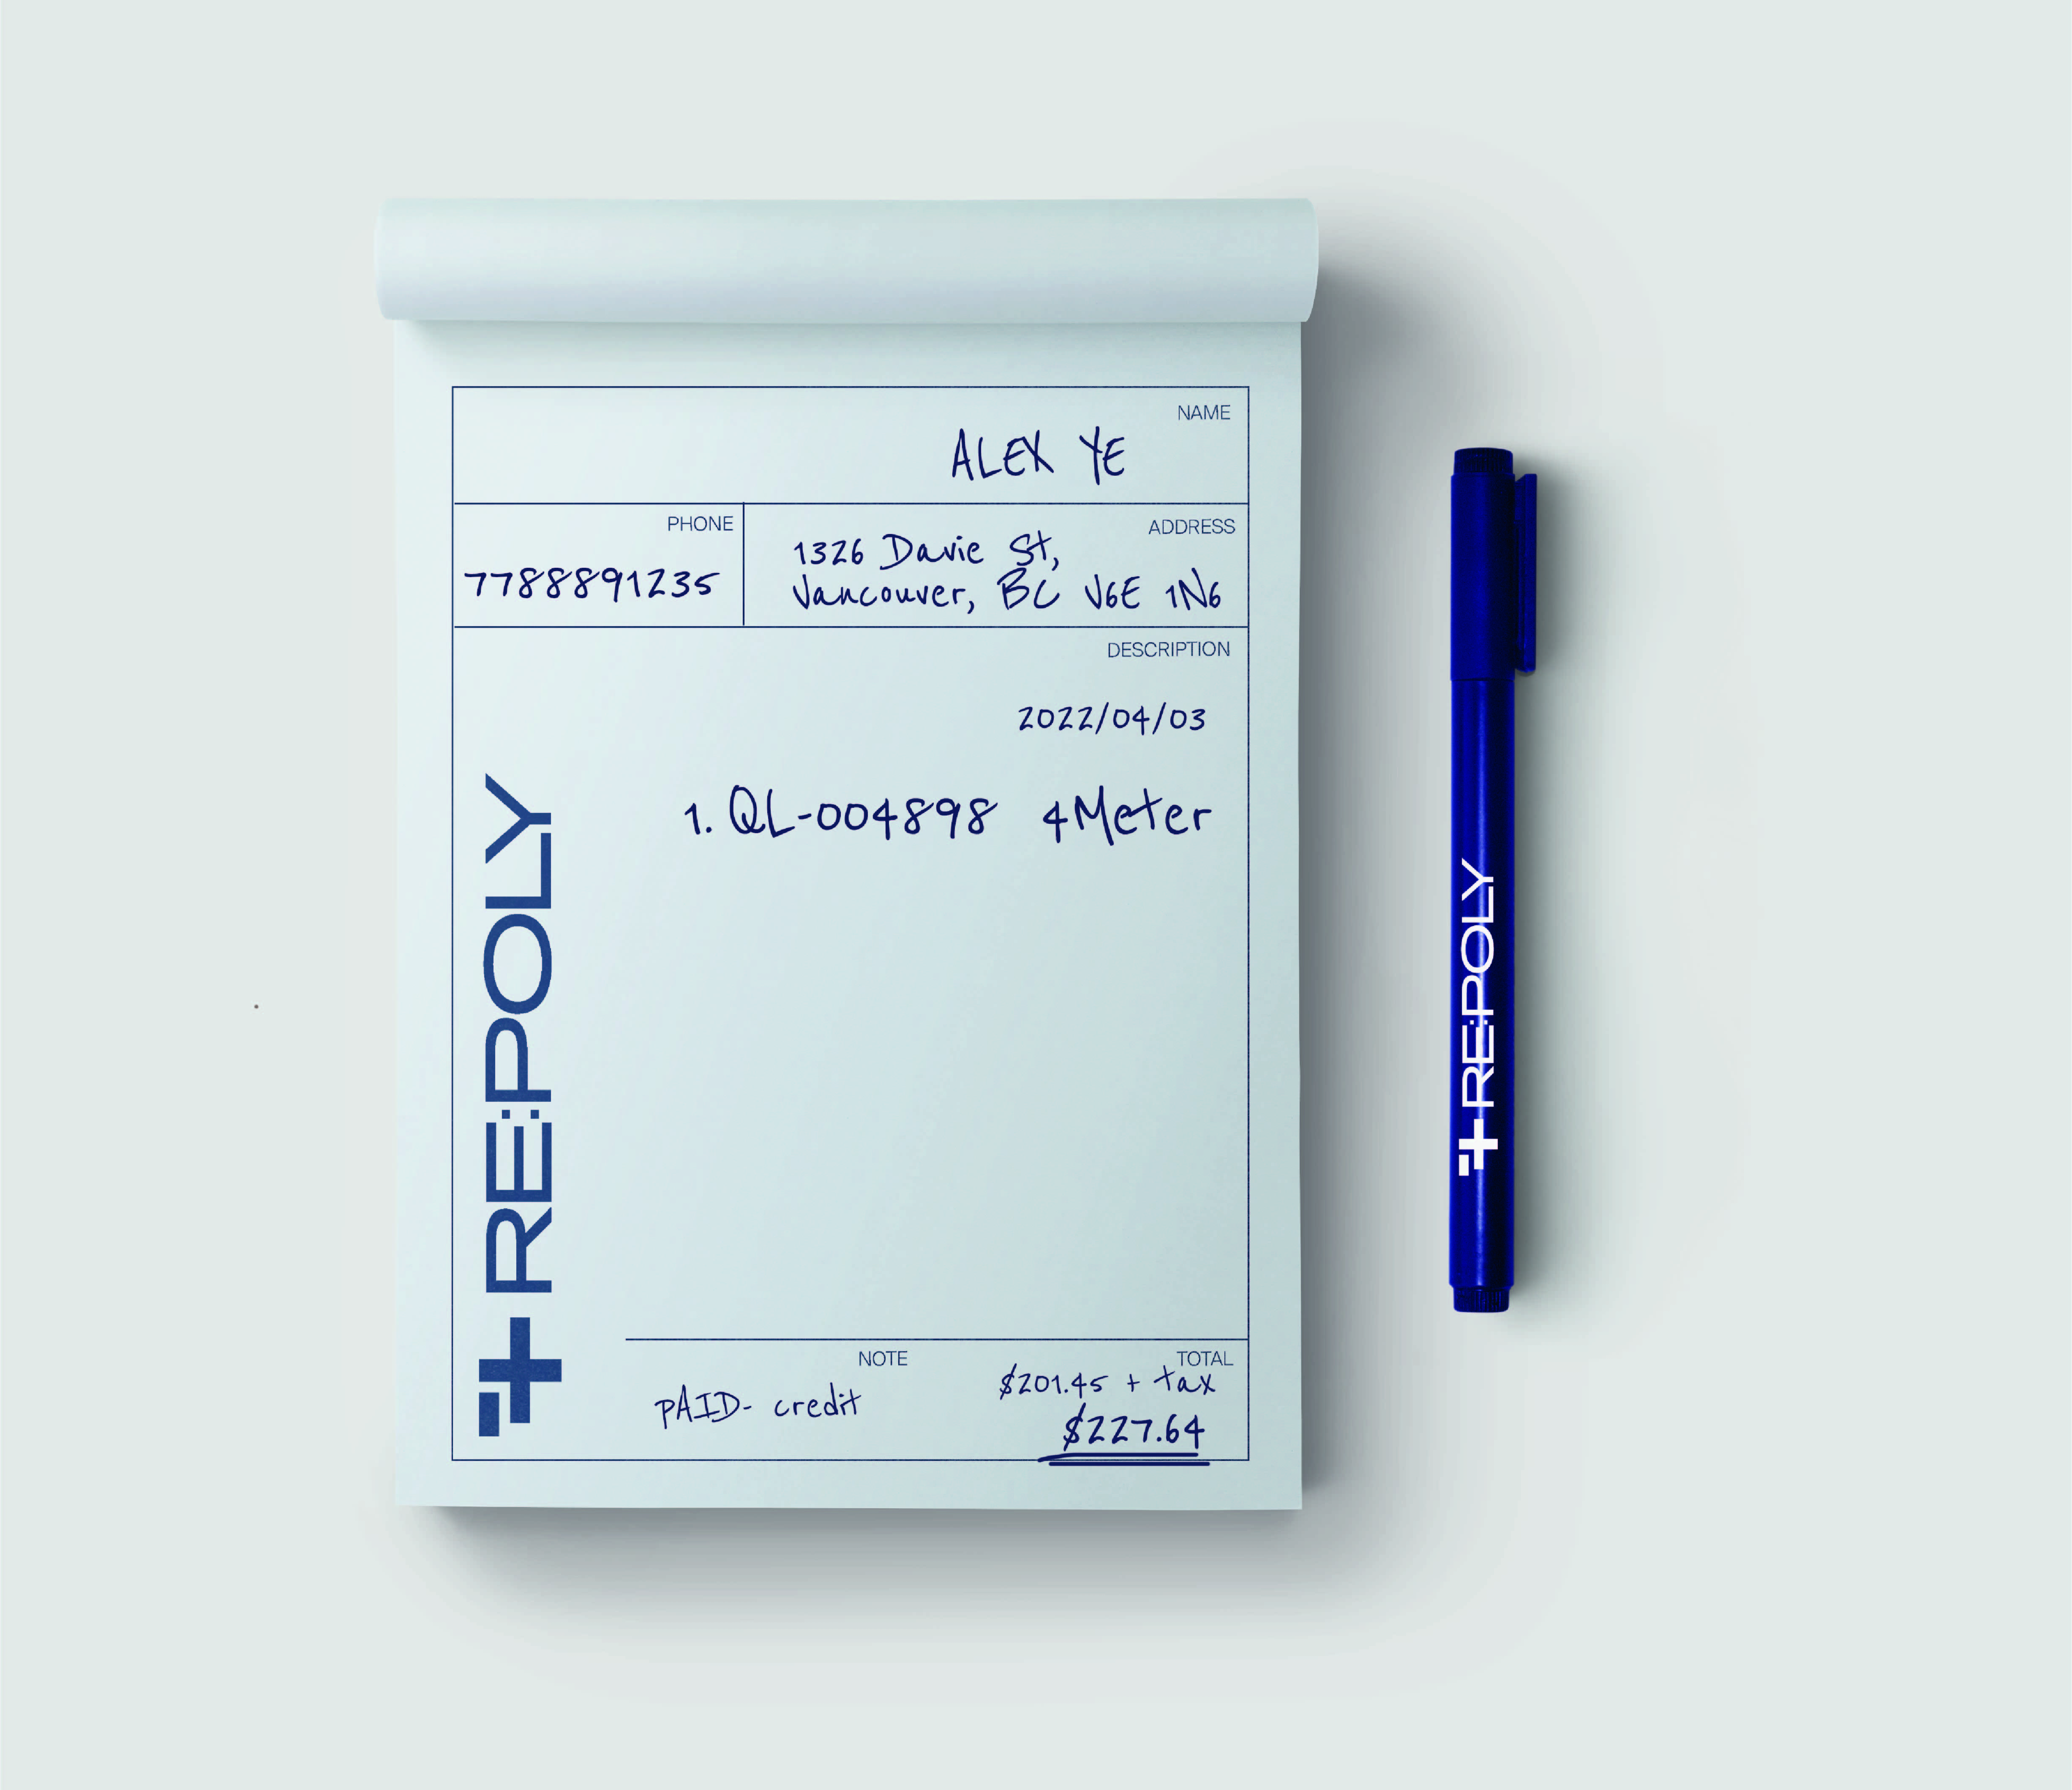 NAME
ALEX YE
PHONE
7788891235
ADDRESS
1326 Davie St,
Vancouver, BC V6E 1N6
DESCRIPTION
2022/04/03
1. QL-004898 4Meter
RE:POLY
NOTE
PAID- credit
TOTAL
$201.45 + tax
$227.64
RE:POLY